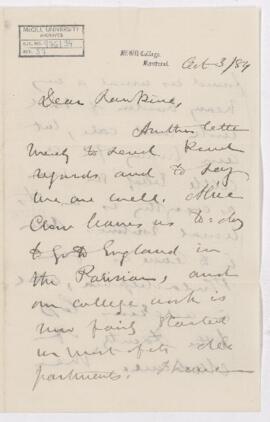 McGILL UNIVERSITY
ARCHIVES
ACC. NO. 926/34
REF. 37
McGill College,
Montreal.
Oct 3/84
Dear Rankine,
Another letter
merely to send kind
regards and to say
we are well. Miss
Clow leaves us to-day
to go to England in
the Parisian, and
our college work is
now fairly started
in most of its de-
partments. I have